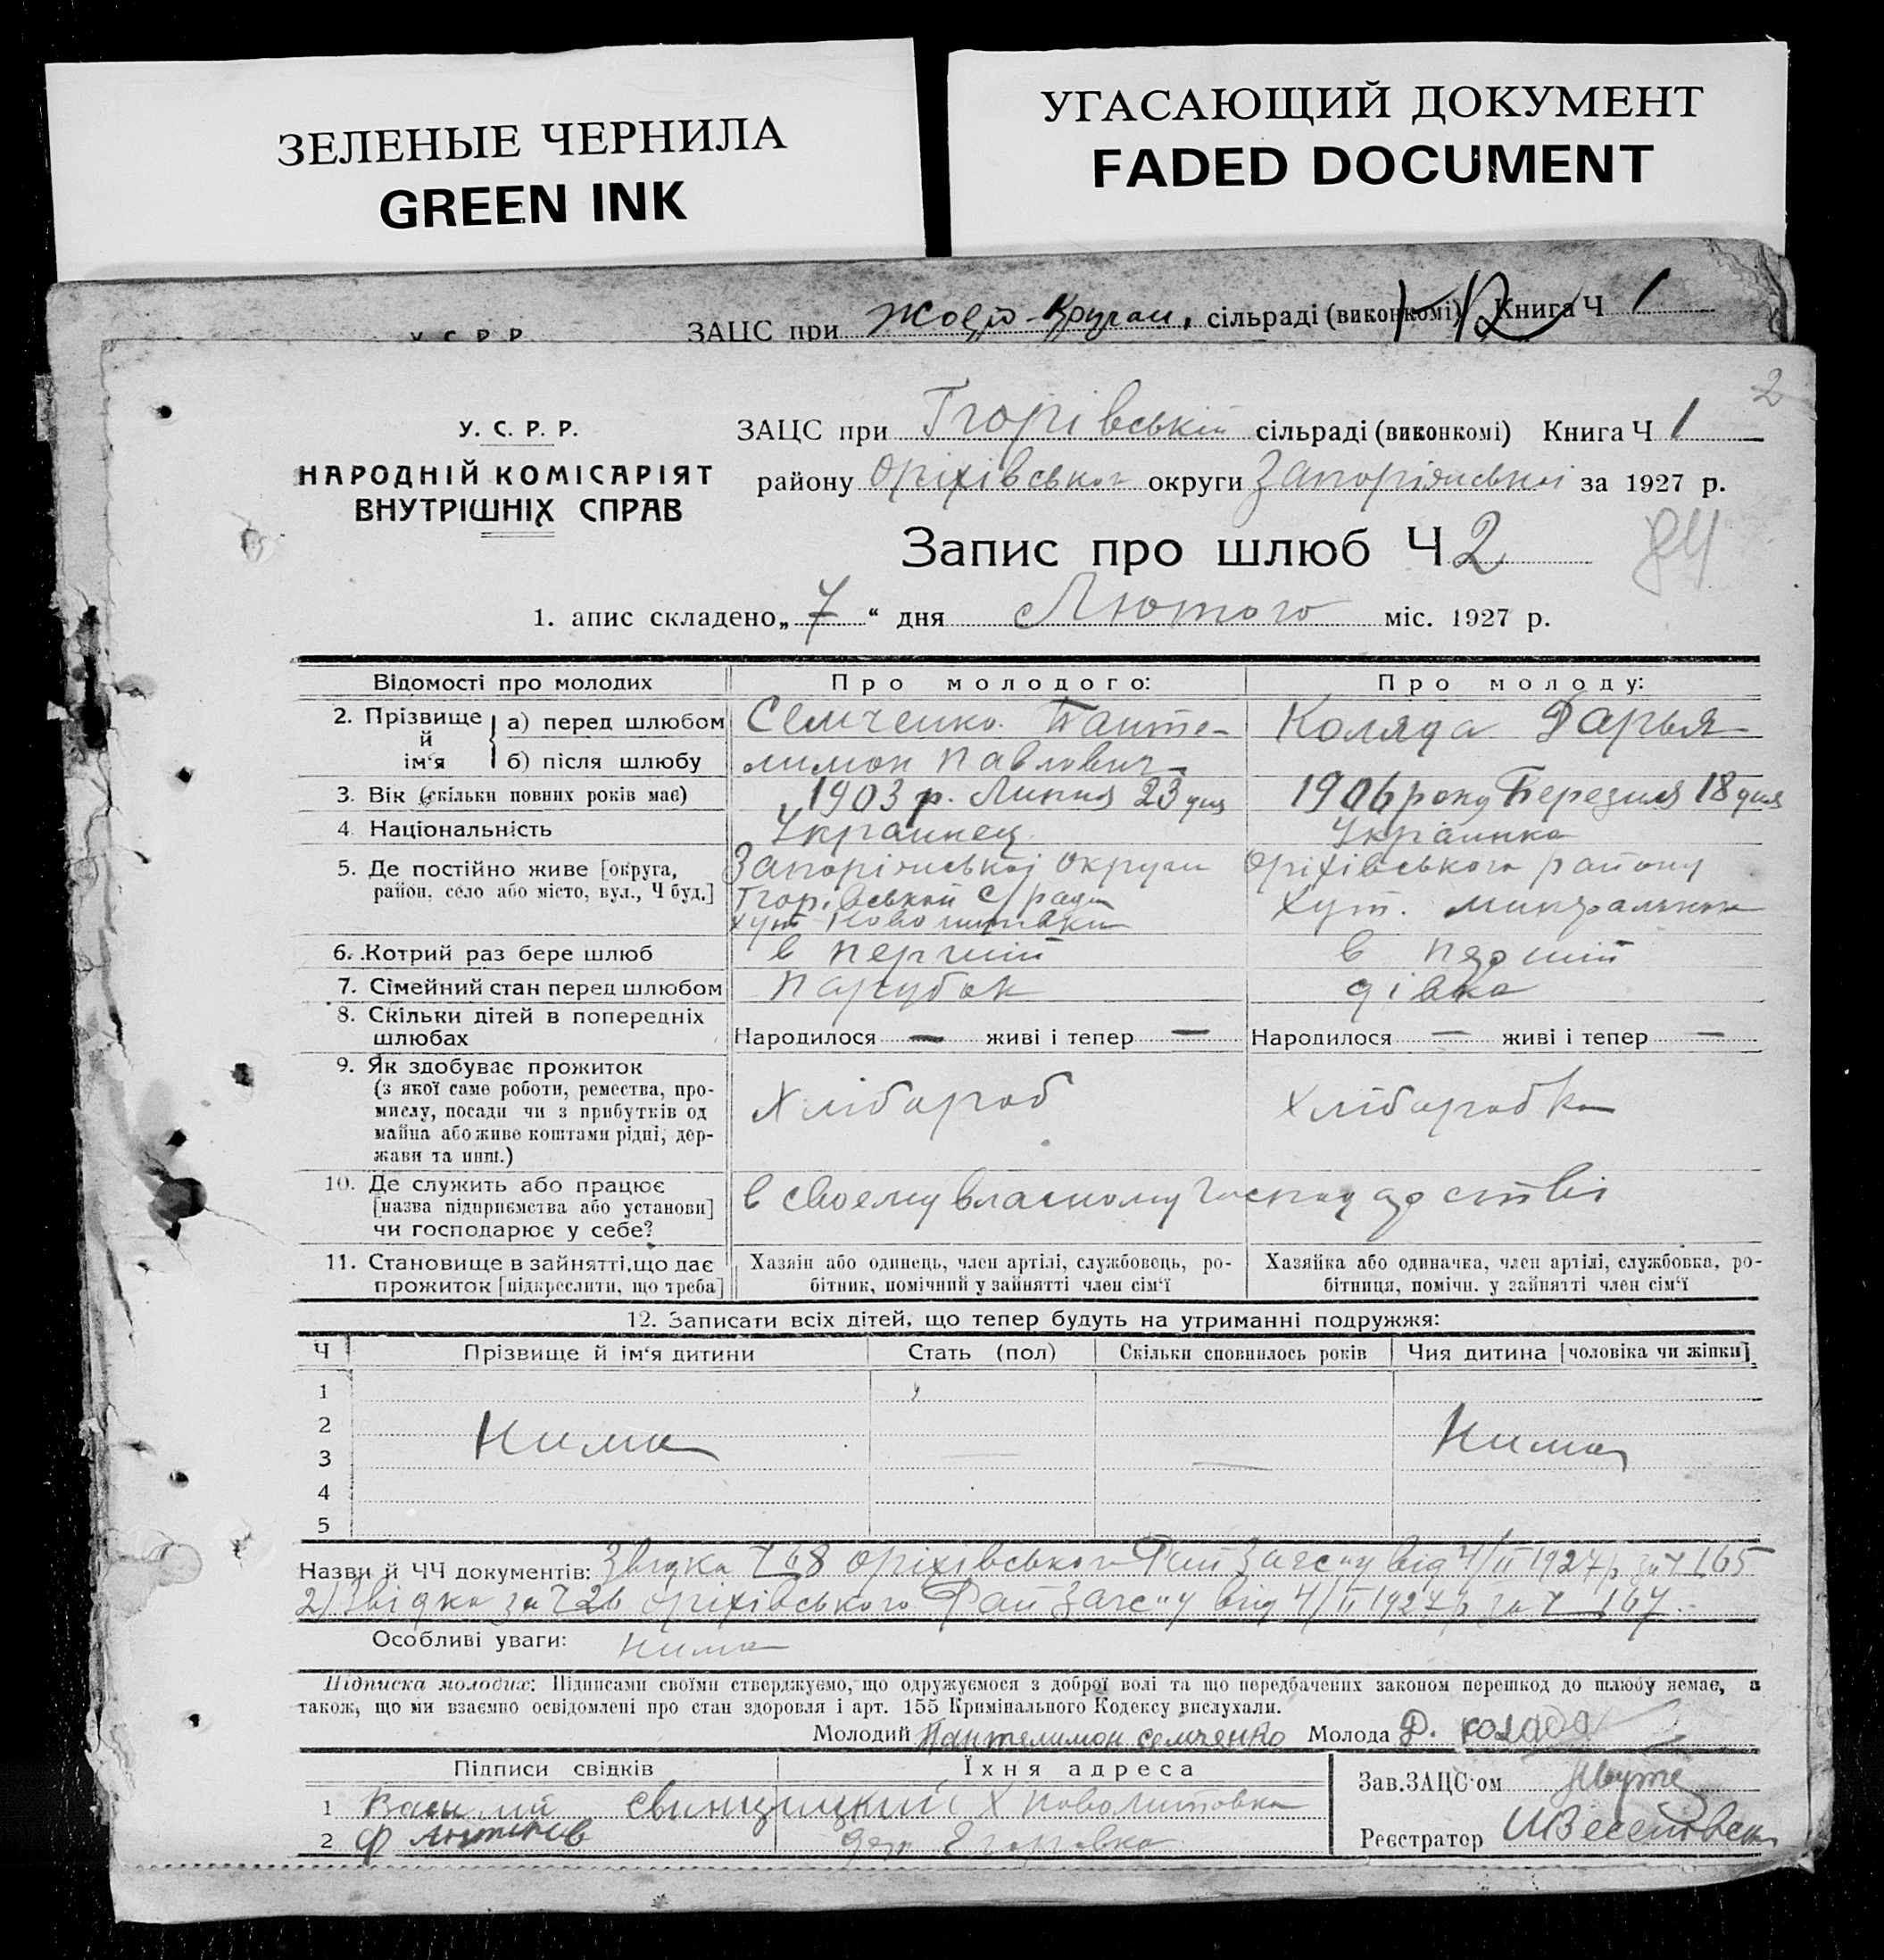 ЗЕЛЕНЫЕ ЧЕРНИЛА
GREEN INK
УГАСАЮЩИЙ ДОКУМЕНТ
FADED DOCUMENT
У.С.Р.Р. ЗАЦС при сільраді (виконкомі) Книга Ч 1
2
У. С. Р. Р.
НАРОДНІЙ КОМІСАРІЯТ
ВНУТРІШНІХ СПРАВ
ЗАЦС при Ігорівській сільраді (виконкомі) Книга Ч 1
району Оріхівськог округи Запоріжської за 1927 р.
Запис про шлюб Ч 2
84
1. апис складено „7“ дня Лютого міс. 1927 р.
Відомості про молодих Про молодого: Про молоду:
2. Прізвище й ім‘я а) перед шлюбом Семченко Панте- Коляда Дарья
б) після шлюбу лимон Павлович
3. Вік (скільки повних років має) 1903 р. Липня 23 дня 1906 року Березня 18 дня
4. Національність Украинец Українка
5. Де постійно живе [округа, Запоріжської округи Оріхівського району
район, село або місто, вул., Ч буд.] Ігорівської с/ради
хут Хут.
6. Котрий раз бере шлюб в перший в перший
7. Сімейний стан перед шлюбом парубок дівка
8. Скільки дітей в попередніх
шлюбах Народилося — живі і тепер — Народилося — живі і тепер —
9. Як здобуває прожиток
(з якої саме роботи, ремества, про-
мислу, посади чи з прибутків од
майна або живе коштами рідні, дер-
жави та инш.)
Хлібороб Хліборобка
10. Де служить або працює
[назва підприємства або установи]
чи господарює у себе?
в своему власному господарстві
11. Становище в зайнятті, що дає
прожиток [підкреслити, що треба]
Хазяїн або одинець, член артілі, службовець, ро-
бітник, помічний у зайнятті член сім‘ї
Хазяйка або одиначка, член артілі, службовка, ро-
бітниця, помічн. у зайнятті член сім‘ї
12. Записати всіх дітей, що тепер будуть на утриманні подружжя:
Ч Прізвище й ім‘я дитини Стать (пол) Скільки сповнилось років Чия дитина [чоловіка чи жінки]
1
2 Нима Нима
3
4
5
Назви й ЧЧ документів: Звідка Ч 68 Оріхівського Рай Загсу від 4/II 1927 р за Ч 165
2) Звідка за Ч 26 Оріхівського Рай Загсу від 4/II 1927 р за Ч 167
Особливі уваги: нима
Підписка молодих: Підписами своїми стверджуємо, що одружуємося з доброї волі та що передбачених законом перешкод до шлюбу немає, а
також, що ми взаємно освідомлені про стан здоровля і арт. 155 Кримінального Кодексу вислухали.
Молодий Пантелимон Семченко Молода Д. Коляда
Підписи свідків Їхня адреса
Зав.ЗАЦС‘ом
1 Василий Х Новолитовка
2 Ф дер Егоровка
Реєстратор